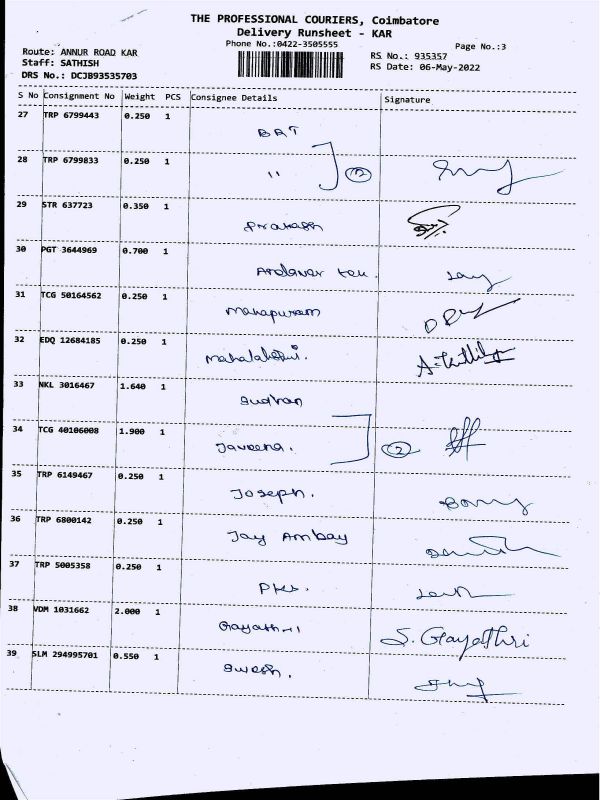 THE PROFESSIONAL COURIERS, Coimbatore
Delivery Runsheet - KAR
Phone No.:0422-3505555
Page No.:3
Route: ANNUR ROAD KAR
RS No.: 935357
Staff: SATHISH
RS Date: 06-May-2022
DRS No.: DCJB93535703
S No Consignment No Weight PCS Consignee Details Signature
27 TRP 6799443 0.250 1
BAT
28 TRP 6799833 0.250 1
" 2
29 STR 637723 0.350 1
Prakash
30 PGT 3644969 0.700 1
Andavar tex.
31 TCG 50164562 0.250 1
32 EDQ 12684185 0.250 1
Mahalakshmi.
33 NKL 3016467 1.640 1
34 TCG 40106008 1.900 1
2
35 TRP 6149467 0.250 1
Joseph.
36 TRP 6800142 0.250 1
Jay Ambay
37 TRP 5005358 0.250 1
38 VDM 1031662 2.000 1
Gayathri S. Gayathri
39 SLM 294995701 0.550 1